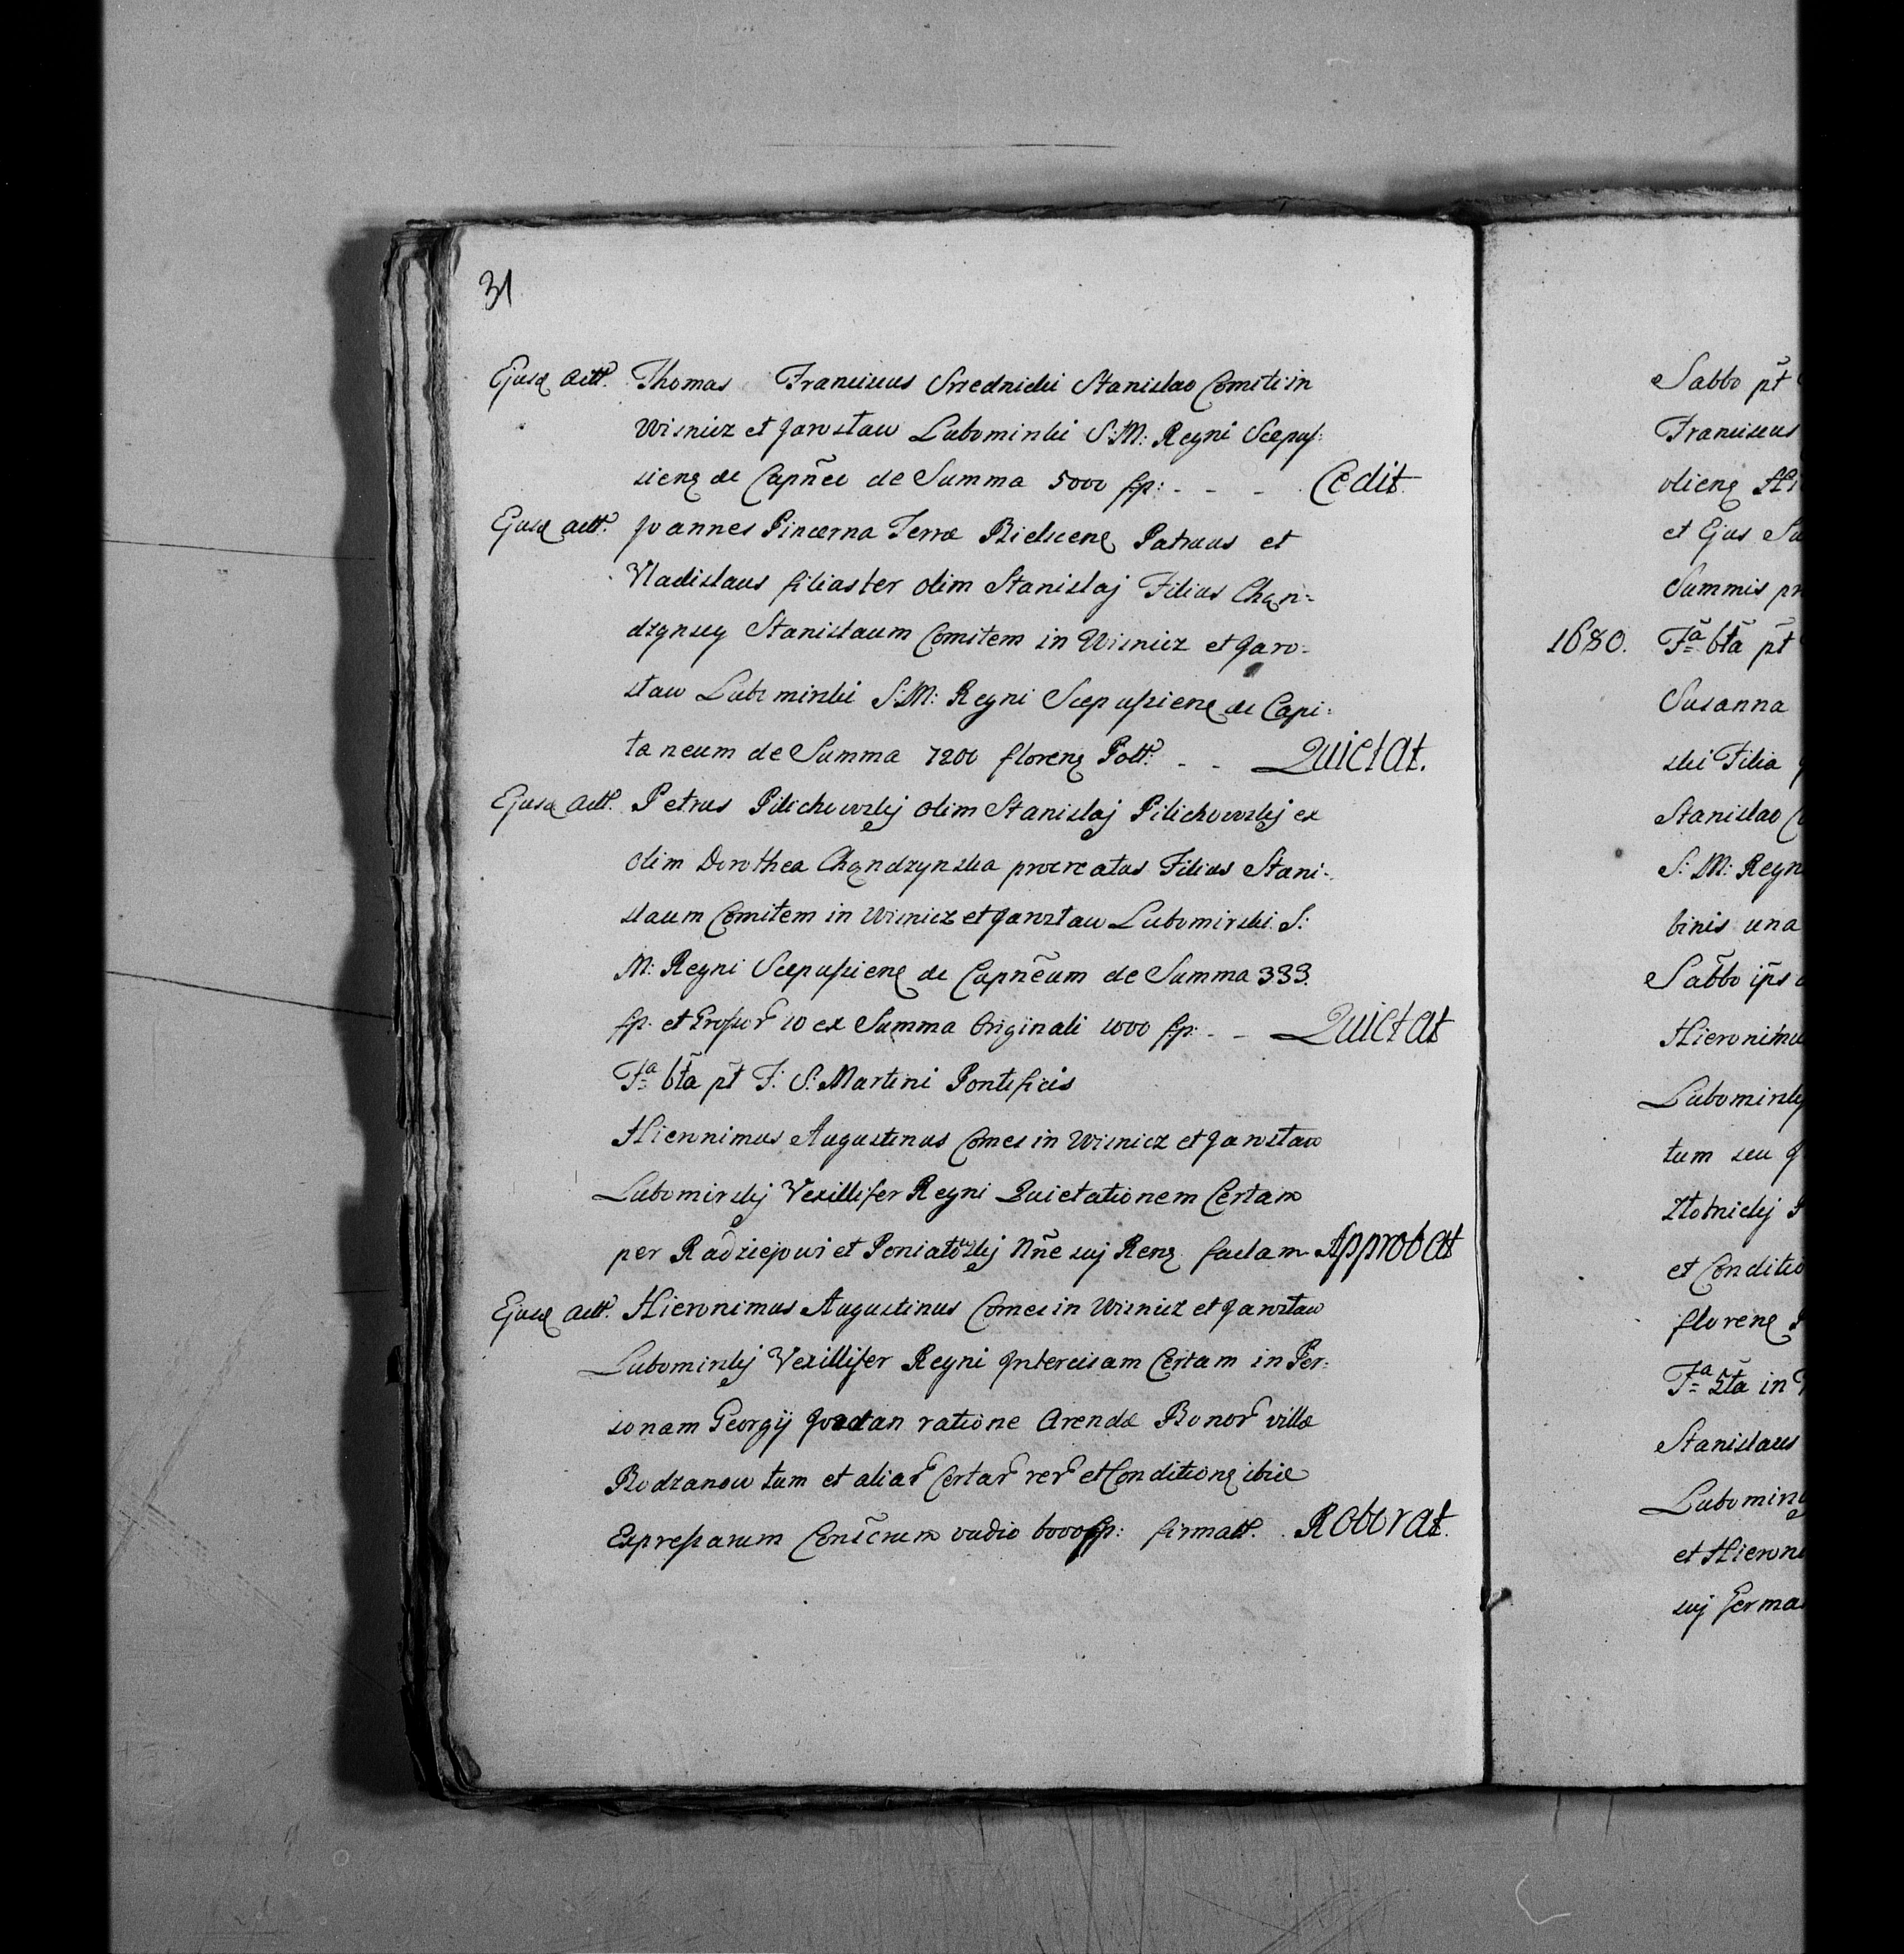 31
Ejusd actt. Thomas Franciscus Srzednicki Stanislao Comiti in
Wisnicz et Jarosław Lubomirski S: M: Regni Scepus:
sienq de Capñeo de Summa 5000 fp: - - - Cedit.
Ejusd actt. Joannes Pincerna Terræ Bielscenq Patruus et
Vladislaus filiaster olim Stanislaj Filius Chąn=
dzynscy Stanislaum Comitem in Wisnicz et Jaro=
sław Lubomirski S: M: Regni Scepusienq de Capi=
taneum de Summa 7200 florenq Poll. - - Quietat.
Ejusd actt. Petrus Pilichowskij olim Stanislaj Pilichowskij ex
olim Dorothea Chądzynska procreatus Filius Stani=
slaum Comitem in Wisnicz et Jarosław Lubomirski S:
M: Regni Scepusienq de Capñeum de Summa 333.
fp. et Grossor 10 ex Summa Originali 1000 fp: - - Quietat
Fa 6ta pt F: S: Martini Pontificis
Hieronimus Augustinus Comes in Wisnicz et Jarosław
Lubomirskij Vexillifer Regni Quietationem Certam
per Radziejowi et Poniatowskij Nñe suj Renq factam Approbat
Ejusd actt. Hieronimus Augustinus Comes in Wisnicz et Jarosław
Lubomirskij Vexillifer Regni Intercisam Certam in Per=
sonam Georgij Jordan ratione Arendæ Bonor villæ
Bodzanow tum et aliar Certar rer et Conditionq ibid
Expressarum Contcrum vadio 6000 fp: firmatt. Roborat.
Sabbo pt
Franciscus
olienq
et Ejus
Summis
1680. Fa 6ta pt
Susanna
ski Filia
Stanislao
S: M: Regn
binis una
Sabbo ips
Hieronimu
Lubomirskij
tum seu
Złotnickij
et Conditio
florenq
Fa 5ta in
Stanislaus
Lubomirs
et Hieroni
suj Germa